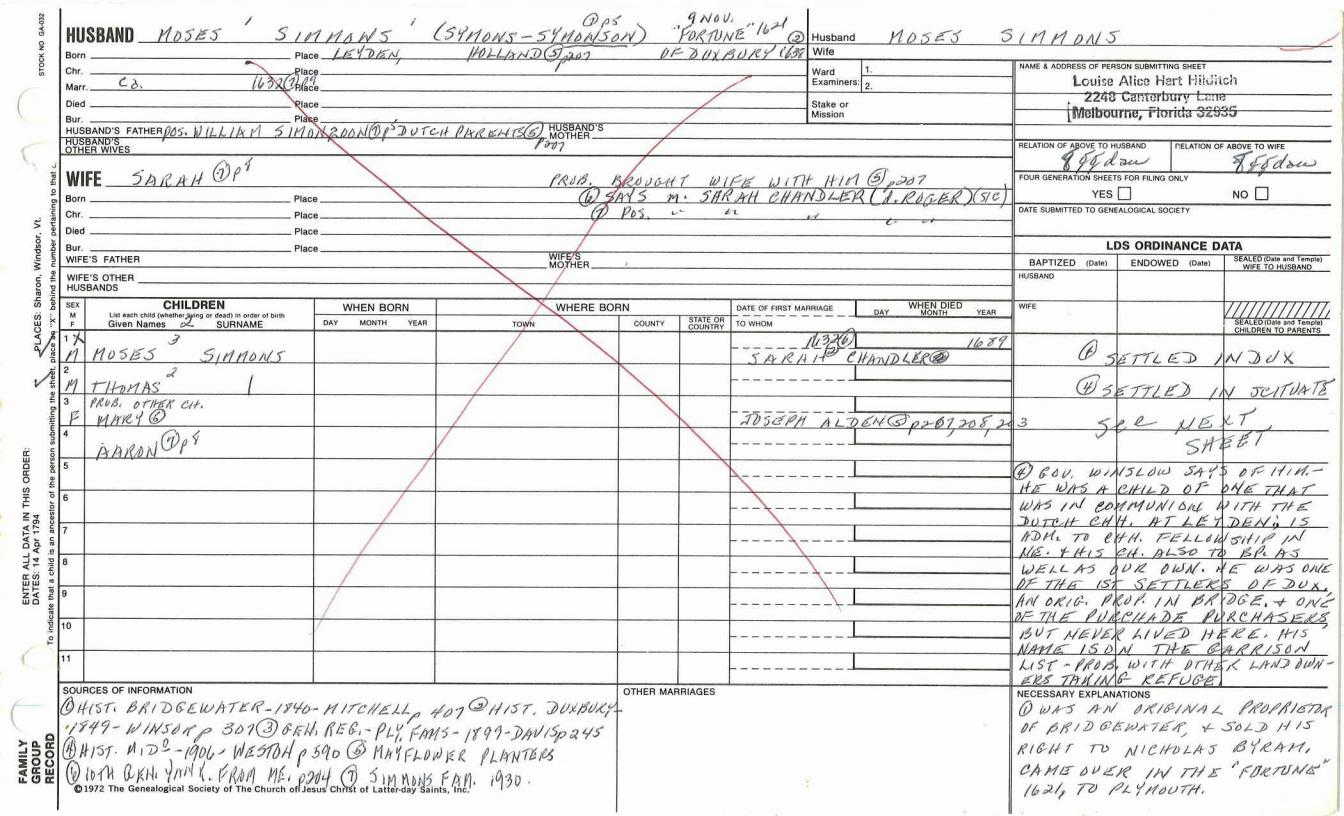 STOCK NO. GA-032
HUSBAND MOSES ' SIMMONS ' (SYMONS-SYMONSON) ⑦ p5 9 NOV. "FORTUNE" 1621 ②
Born Place LEYDEN, HOLLAND ⑤ p207 OF DUXBURY 1638
Chr. Place
Marr. ca. 1632 Place
Died Place
Bur. Place
HUSBAND'S FATHER POS. WILLIAM ⑦ p5 DUTCH PARENTS ⑤ p207 HUSBAND'S MOTHER
HUSBAND'S OTHER WIVES
Husband MOSES SIMMONS
Wife
Ward Examiners: 1.
2.
Stake or Mission
NAME & ADDRESS OF PERSON SUBMITTING SHEET
Louise Alice Hart Hilditch
2248 Canterbury Lane
Melbourne, Florida 32935
RELATION OF ABOVE TO HUSBAND RELATION OF ABOVE TO WIFE
FOUR GENERATION SHEETS FOR FILING ONLY
YES NO
DATE SUBMITTED TO GENEALOGICAL SOCIETY
WIFE SARAH ⑦ p8 PROB. BROUGHT WIFE WITH HIM ⑤ p207
Born Place ⑥ SAYS M. SARAH CHANDLER (d. ROGER) (SIC)
Chr. Place ⑦ POS. " " " " "
Died Place
Bur. Place
WIFE'S FATHER WIFE'S MOTHER
WIFE'S OTHER HUSBANDS
LDS ORDINANCE DATA
BAPTIZED (Date) ENDOWED (Date) SEALED (Date and Temple) WIFE TO HUSBAND
HUSBAND
WIFE
SEALED (Date and Temple) CHILDREN TO PARENTS
SEX M F CHILDREN WHEN BORN WHERE BORN DATE OF FIRST MARRIAGE WHEN DIED
List each child (whether living or dead) in order of birth
Given Names 2 SURNAME DAY MONTH YEAR TOWN COUNTY STATE OR COUNTRY TO WHOM DAY MONTH YEAR
1 X 3 1632 ⑥ 1689
M MOSES SIMMONS SARAH CHANDLER
2
M THOMAS 2
3 PROB. OTHER CH.
F MARY ⑥ JOSEPH ALDEN ⑤ p207, 208, 2
4
AARON ⑦ p8
5
6
7
8
9
10
11
SETTLED IN DUX
④ SETTLED IN SCITUATE
3 See NEXT
SHEET
④ GOV. WINSLOW SAYS OF HIM.-
HE WAS A CHILD OF ONE THAT
WAS IN COMMUNION WITH THE
DUTCH CHH. AT LEYDEN; IS
ADM. TO CHH. FELLOWSHIP IN
NE. + HIS CH. ALSO TO BP. AS
WELL AS OUR OWN. HE WAS ONE
OF THE 1ST SETTLERS OF DUX.
AN ORIG. PROP. IN BRIDGE. + ONE
OF THE PURCHADE PURCHASERS,
BUT NEVER LIVED HERE. HIS
NAME IS ON THE GARRISON
LIST - PROB. WITH OTHER LAND OWN-
ERS TAKING REFUGE.
SOURCES OF INFORMATION
① HIST. BRIDGEWATER-1840-MITCHELL p 407 ② HIST. DUXBURY-
1849-WINSOR p 307 ③ GEN. REG.-PLY. FAMS-1899-DAVIS p 245
④ HIST. MIDº-1906-WESTON p 590 ⑤ MAYFLOWER PLANTERS
⑥ 10TH GEN. YANK. FROM ME. p204 ⑦ SIMMONS FAM. 1930.
©1972 The Genealogical Society of The Church of Jesus Christ of Latter-day Saints, Inc.
OTHER MARRIAGES
NECESSARY EXPLANATIONS
① WAS AN ORIGINAL PROPRIETOR
OF BRIDGEWATER, + SOLD HIS
RIGHT TO NICHOLAS BYRAM,
CAME OVER IN THE "FORTUNE"
1621, TO PLYMOUTH.
FAMILY GROUP RECORD
ENTER ALL DATA IN THIS ORDER:
DATES: 14 Apr 1794
PLACES: Sharon, Windsor, Vt.
To indicate that a child is an ancestor of the person submitting the sheet, place an "X" behind the number pertaining to that c